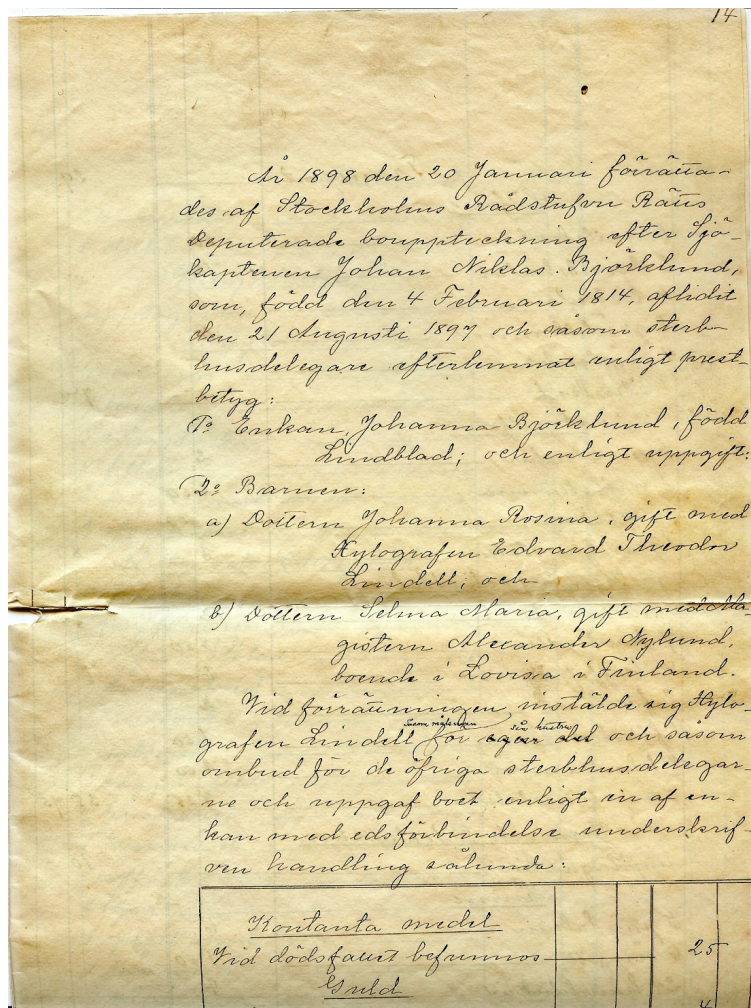 14
År 1898 den 20 Januari förrätta-
des af Stockholms Rådstufvu Rätts
Deputerade bouppteckning efter Sjö-
kaptenen Johan Niklas Björklund,
som, född den 4 Februari 1814, aflidit
den 21 Augusti 1897 och såsom sterb-
husdelegare efterlemnat enligt prest-
betyg:
1o Enkan, Johanna Björklund, född
Lindblad; och enligt uppgift:
2o Barnen:
a) Dottern Johanna Rosina, gift med
Xylografen Edvard Theodor
Lindell; och
b) Dottern Selma Maria, gift med Ma-
gistern Alexander Nylund,
boende i Lovisa i Finland.
Vid förrättningen instälde sig Xylo-
såsom målsman sin hustru
grafen Lindell för egen del och såsom
ombud för de öfriga sterbhusdelegar-
ne och uppgaf boet enligt en af en-
kan med edsförbindelse underskrif-
ven handling sålunda:
Kontanta medel
Vid dödsfallet befunnos 25
Guld
4